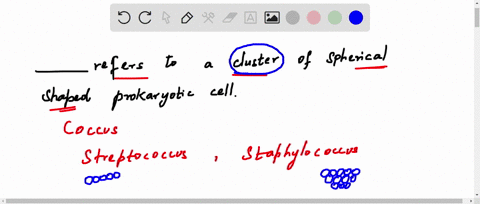 ____ refers to a cluster of spherical
shaped prokaryotic cell.
Coccus
Streptococcus , Staphylococcus